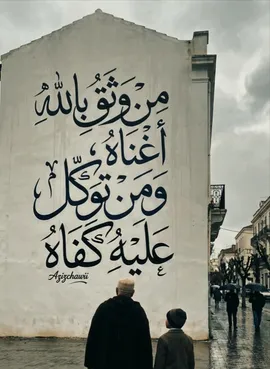 مَن وَثِقَ بِاللهِ
أَغْنَاهُ،
وَمَنْ تَوَكَّلَ
عَلَيْهِ كَفَاهُ
Azizchawii